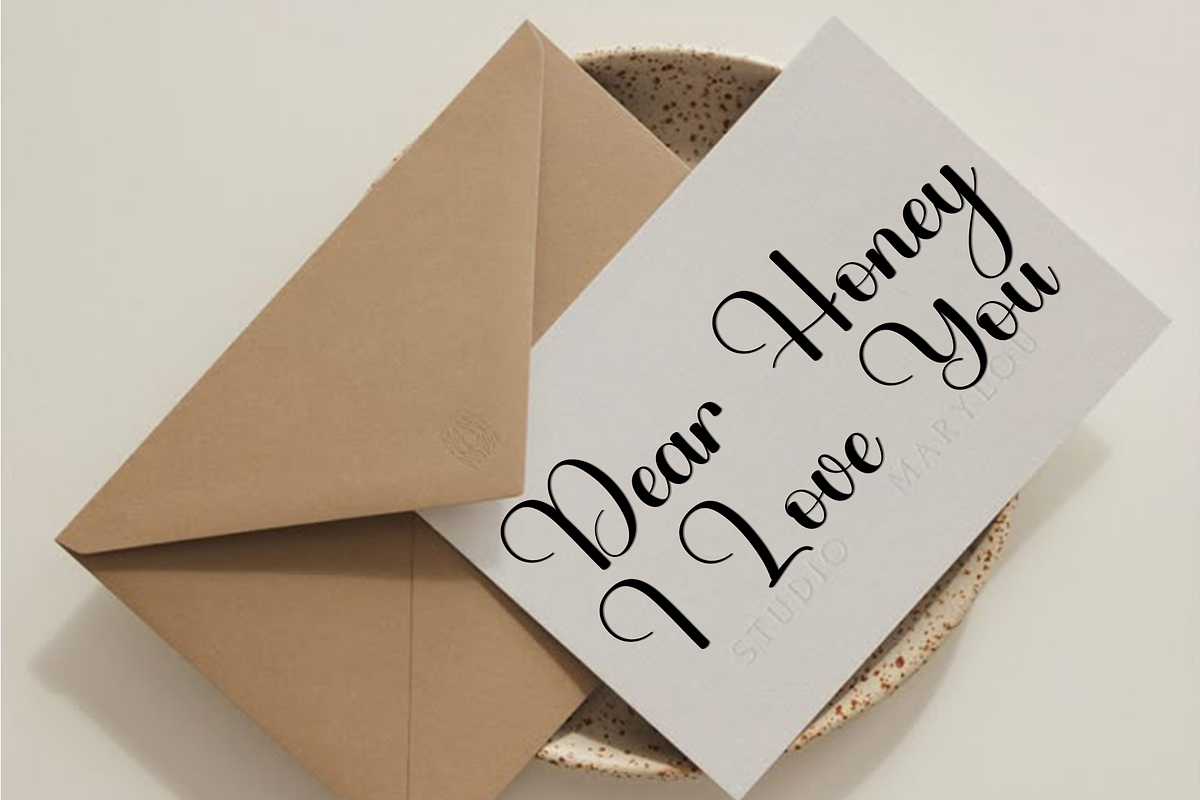 Dear Honey
I Love You
STUDIO MARYLOU